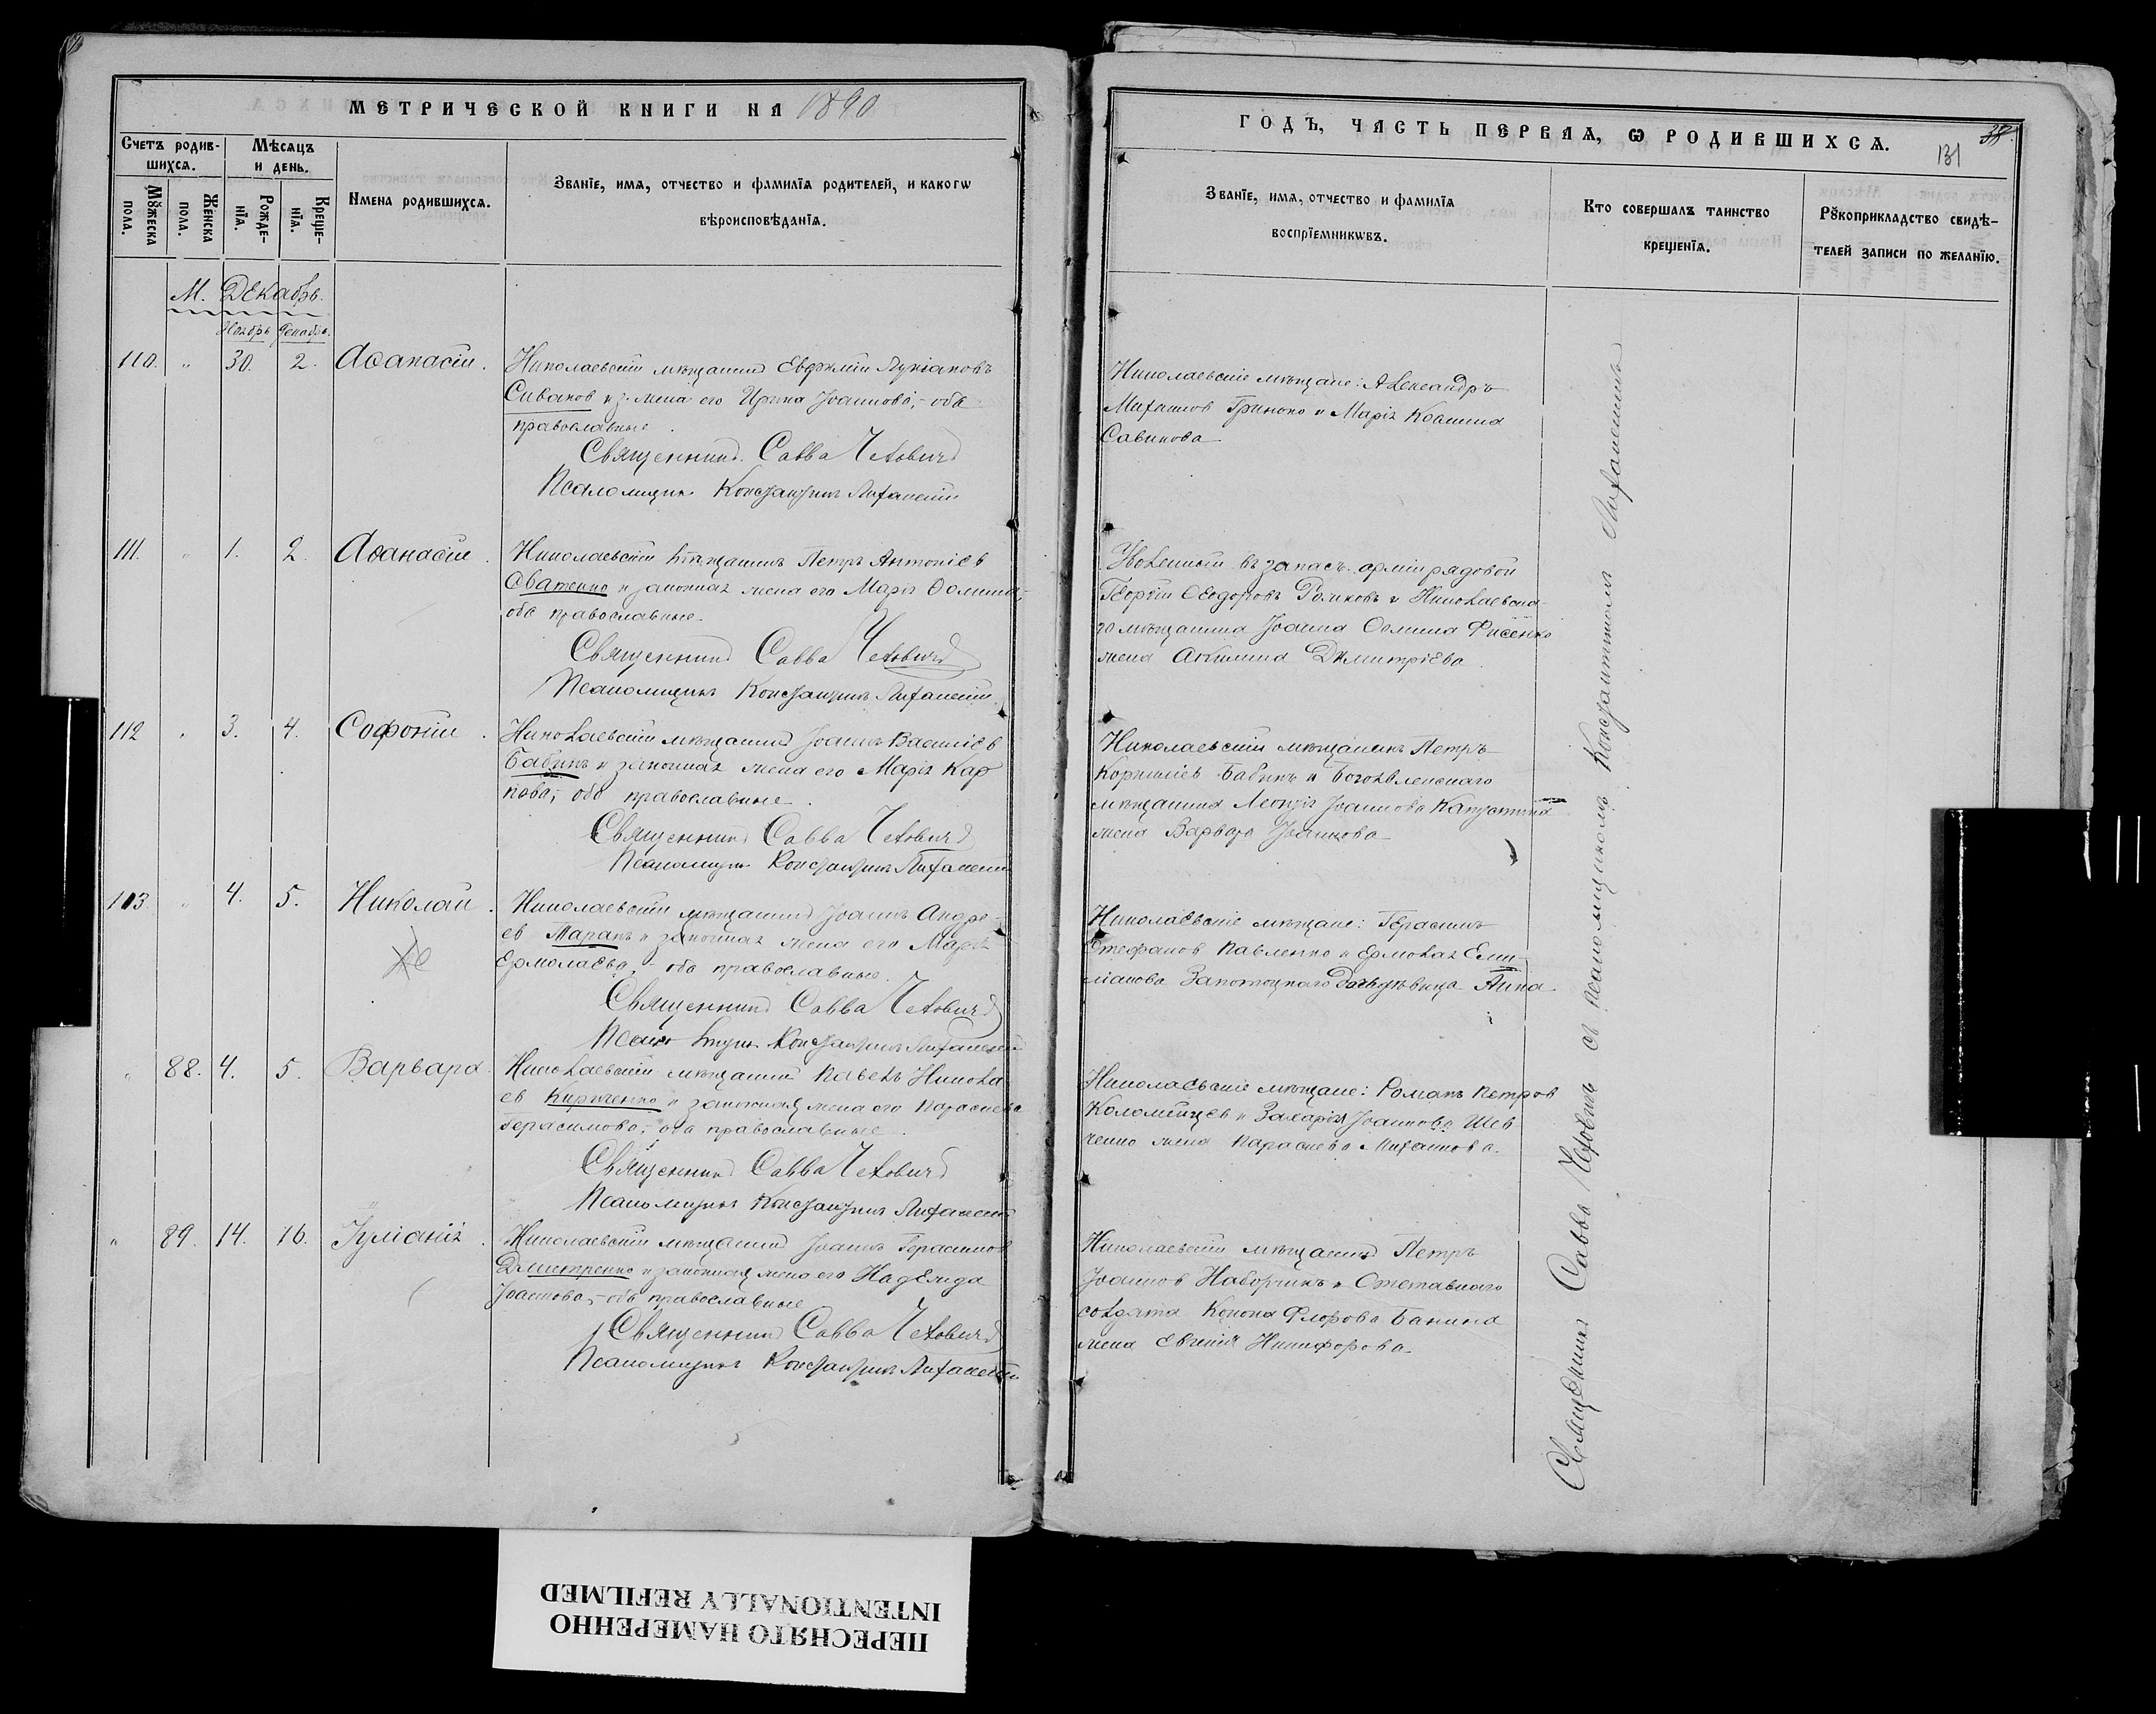 МЕТРИЧЕСКОЙ КНИГИ НА 1890
Счетъ родив-
шихсѧ.
Мѣсѧцъ
и день.
Мꙋжеска
пола.
Женска
пола.
Рожде-
нїѧ.
Креще-
нїѧ.
Имена родившихсѧ.
Званїе, имѧ, отчество и фамилїѧ родителей, и какогѡ
вѣроисповѣданїѧ.
М. Декабрь.
Ноябрь Декабрь.
110. " 30. 2. Аѳанасій.
Николаевскій мѣщанинъ Евфимій Лукіановъ
Сиваков и з. жена его Ирина Іоаннова, оба
православные.
Священникъ Савва Чехович
Псаломщикъ Константинъ Лифанскій
111. " 1. 2. Аѳанасій.
Николаевскій мѣщанинъ Петръ Антоніев
Сватенко и законная жена его Марія Ѳомина,
оба православные.
Священникъ Савва Чехович
Псаломщикъ Константинъ Лифанскій.
112 " 3. 4. Софоній.
Николаевскій мѣщанинъ Іоаннъ Василіев
Бабинъ и законная жена его Марія Кар
пова, оба православные.
Священникъ Савва Чехович
Псаломщикъ Константинъ Лифанскій
113. " 4. 5. Николай.
Николаевскій мѣщанинъ Іоаннъ Андре-
ев Таранъ и законная жена его Марія
Ермолаева, оба православные.
Священникъ Савва Чехович
Псаломщикъ Константинъ Лифанскій
" 88. 4. 5. Варвара.
Николаевскій мѣщанинъ Павелъ Никола
ев Кириченко и законная жена его Параскева
Герасимова, оба православные.
Священникъ Савва Чехович
Псаломщикъ Константинъ Лифанскій
" 89. 14. 16. Іуліанія.
Николаевскій мѣщанинъ Іоаннъ Герасимов
Дмитренко и законная жена его Надежда
Іоаннова, оба православные
Священникъ Савва Чехович
Псаломщикъ Константинъ Лифанскій
ГОДЪ, ЧАСТЬ ПЕРВАѦ, Ѡ РОДИВШИХСѦ.
38.
131
Званїе, имѧ, отчество и фамилїѧ
воспрїемникѡвъ.
Кто совершалъ таинство
крещенїѧ.
Рꙋкоприкладство свидѣ-
телей записи по желанїю.
Николаевскіе мѣщане: Александръ
Михаилов Гринко и Марія Косьмина
Савинова
Уволенный въ запасъ арміи рядовой
Георгій Ѳеодоровъ Роликовъ и Николаевска-
го мѣщанина Іоанна Ѳомина Фисенко
жена Акилина Димитріева.
Николаевскій мѣщанинъ Петръ
Корниліев Бабинъ и Богоявленскаго
мѣщанина Леонтія Іоаннова Капустина
жена Варвара Іоаннова
Николаевскіе мѣщане: Герасимъ
Стефанов Павленко и Ермолая Еми-
ліанова Запотоцкаго дочь дѣвица Анна.
Николаевскіе мѣщане: Романъ Петров
Коломійцев и Захарія Іоаннова Шев
ченко жена Параскева Михаилова.
Николаевскій мѣщанинъ Петръ
Іоаннов Наборчикъ и Отставнаго
солдата Конона Флорова Банина
жена Евгенія Никифорова.
Священникъ Савва Чеховичъ съ псаломщикомъ Константиномъ Лифанскимъ
ПЕРЕСНЯТО НАМЕРЕННО
INTENTIONALLY REFILMED